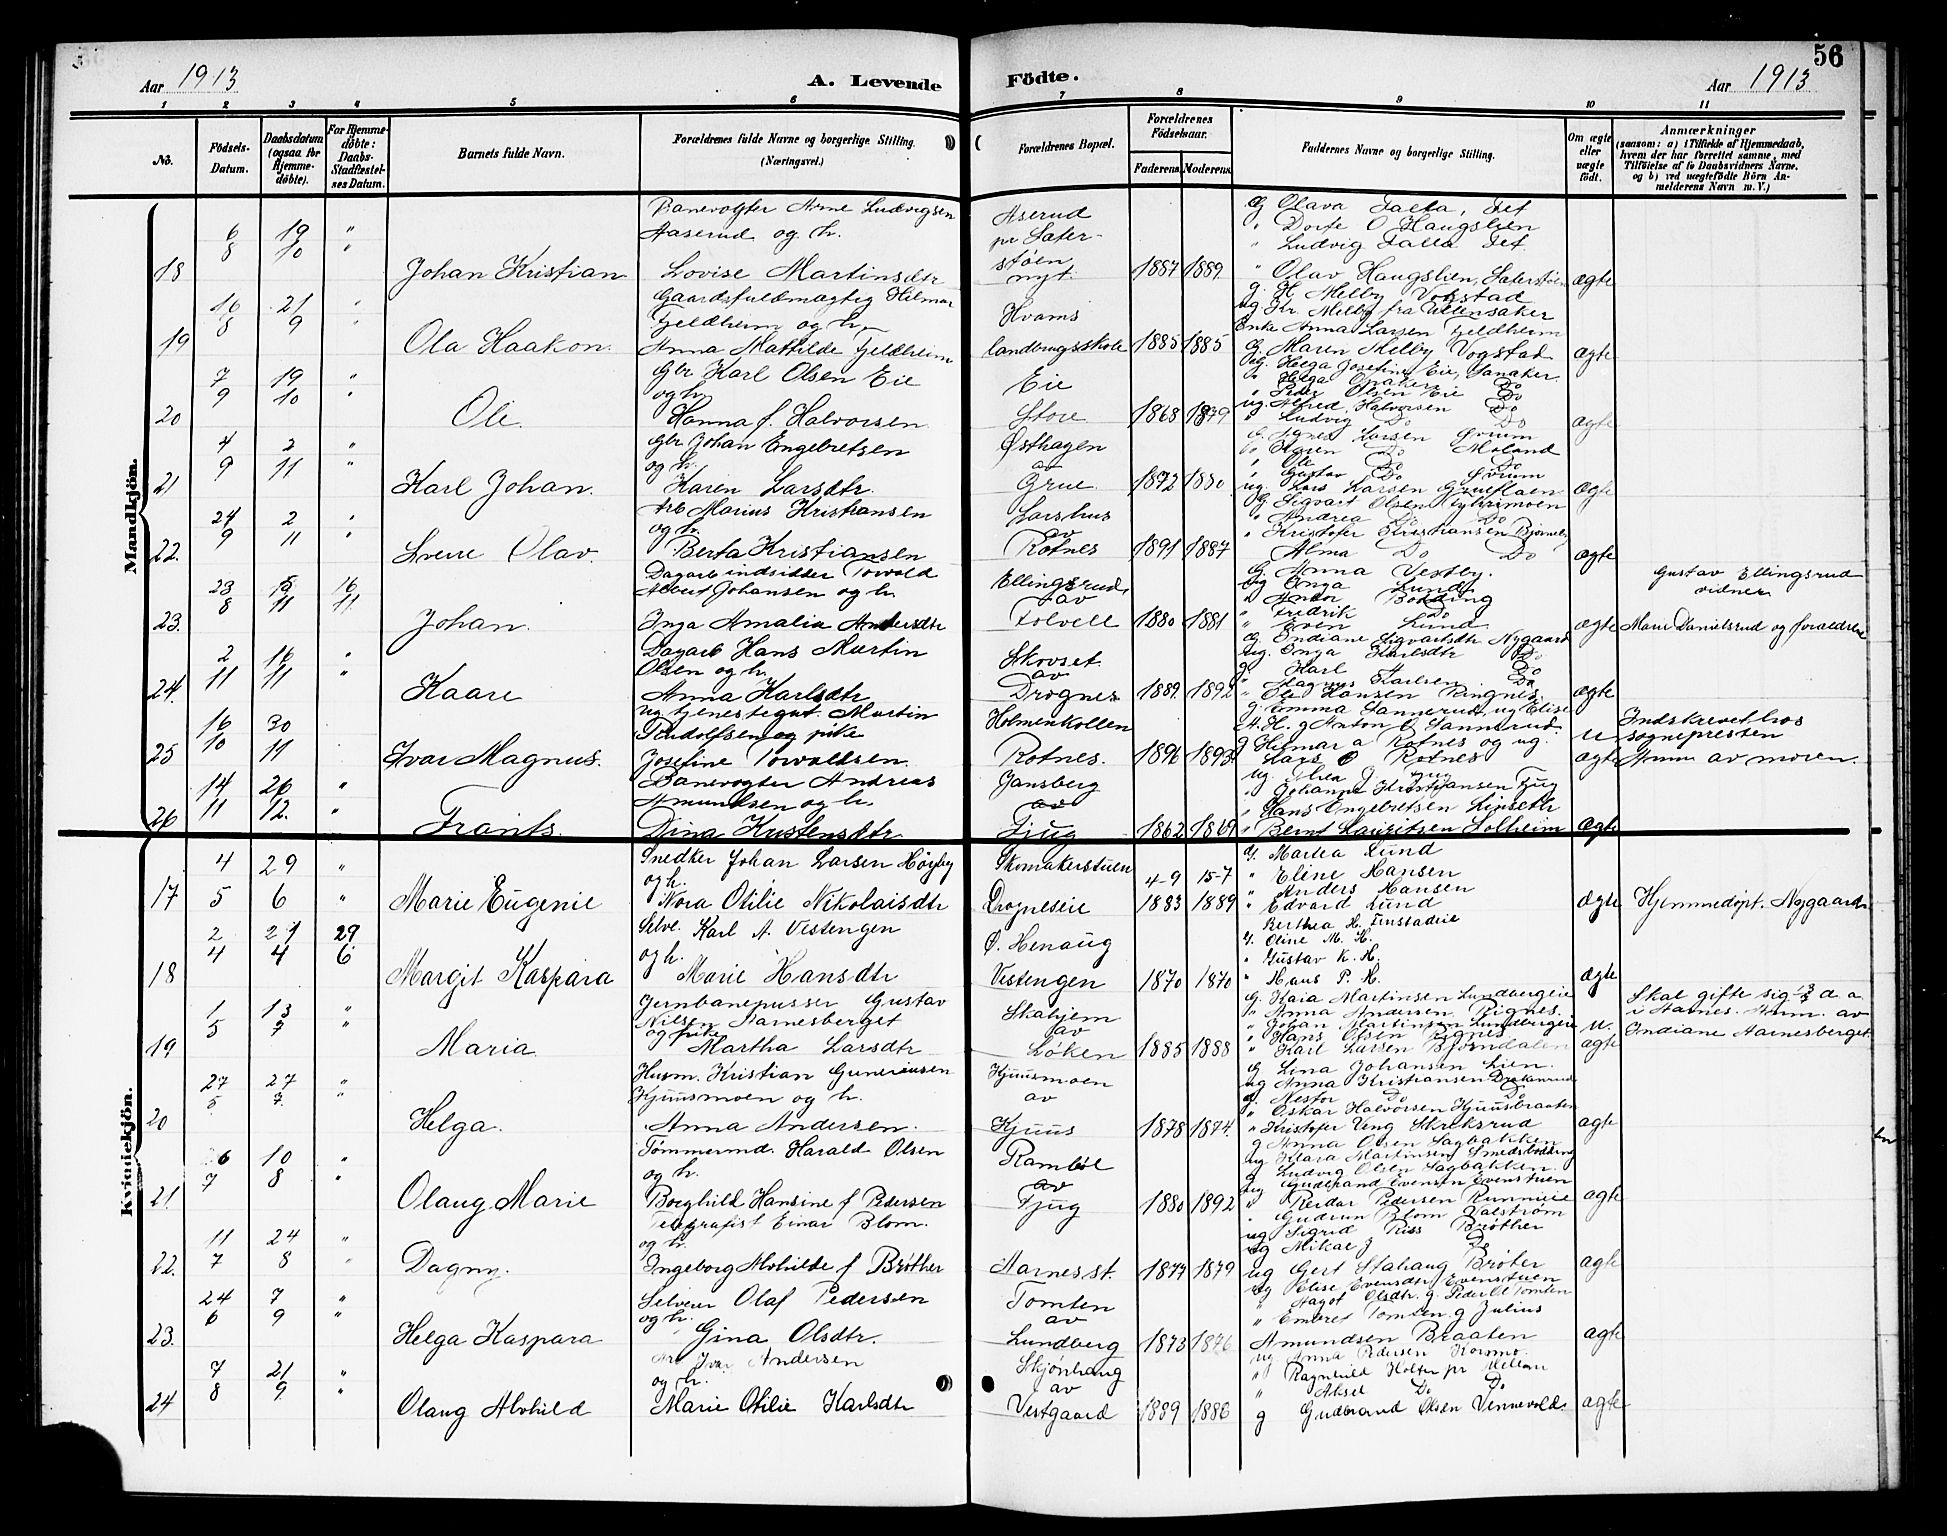 56
Aar 1913
A. Levende Födte.
Aar 1913
1 2 3 4 5 6 7 8 9 10 11
No.
Födsels-Datum.
Daabsdatum (ogsaa for Hjemme-döbte).
For Hjemme-döbte: Daabs-Stadfæstel-ses Datum.
Barnets fulde Navn.
Forældrenes fulde Navne og borgerlige Stilling. (Næringsvei.)
Forældrenes Bopæl.
Forældrenes Födselsaar.
Faderens. Moderens.
Faddernes Navne og borgerlige Stilling.
Om ægte eller uægte födt.
Anmærkninger
(saasom: a) i Tilfælde af Hjemmedaab,
hvem der har forrettet samme, med
Tilföielse af to Daabsvidners Navne,
og b) ved uægtefödte Börn An-
melderens Navn m. V.)
Mandkjön.
18 6/8 19/10 " Johan Kristian
Banevogter Arne Ludvigsen
Aaserud og h.
Lovise Martinsdtr
Aserud
pr Sater-
støen
nyt.
1887 1889
g Olava Falla, Fet
" Dorte O Haugslien
" Ludvig Falla Fet
" Olav Haugslien, Saterstøen
ægte
19 10/8 21/9 " Ola Haakon.
Gaardsfuldmægtig Hilmar
Fjeldheim og h.
Anna Mathilde Fjeldheim
Hvams
landbrugsskole
1885 1885
g. H Melby Vogstad
ug Kr. Melby fra Ullensaker
Enke Anna Larsen Fjeldheim
g. Maren Melby Vogstad
ægte
20 7/9 19/10 " Ole.
Gbr Karl Olsen Eie
og h.
Hanna f. Halvorsen
Eie
Store
1868 1879
ug. Helga Josefine Eie, Sanaker.
" Peder Olsen Eie Do
ug. Alfred Halvorsen Do
" Ludvig Do Do
ægte
21 4/9 2/11 " Karl Johan.
Gbr Johan Engebretsen
og h.
Karen Larsdtr.
Østhagen
av
Grue.
1872 1880
g. Agnes Larsen Gruum
" Karen Do Moland
" Ole Do Do
" Gustav Do Sørum
ug. Lars Larsen
ægte
22. 24/9 2/11 " Sverre Olav.
Arb Marius Kristiansen
og h.
Berta Kristiansen
Larshus
av
Rotnes
1891 1887
g Sigvart Olsen Tyhrimoen
" Andrea Do Do
" Kristofer Kristiansen
Alma Do Do
ægte
23. 23/8 15/11 16/11 Johan.
Dagarb indsidder Torvald
Albert Johansen og h.
Inga Amalia Andersdtr
Ellingsrud,
av
Folvell
1880 1881
g. Anna Vestby.
ug Inga Lund
" Anton Bødding
" Fredrik Do
" Even Lund
ægte
Gustav Ellingsrud
vidner
Marie Danielsrud og foraldrene
24. 2/11 16/11 " Kaare
Dagarb Hans Martin
Olsen og h.
Anna Karlsdtr
Skovset
av
Drognes
1889 1892
g. Indiane Sigvartsdtr Nygaard
ug. Inga Karlsdtr Do
g. Karl Do
" Magnus Karlsen Do
" Oled Hansen Ringnes.
ægte
25 16/10 30/11 Ivar Magnus.
ug tjenestegut. Martin
Rudolfsen og pike
Josefine Torvaldsen.
Holmenkollen
Rotnes.
1896 1893
g. Emma Sannerud, ug Elise
A. H. g Anton O Sannerud
g Hilmar a Rotnes og ug.
Lars O Rotnes
u
ægte
Indskrevet hos
sognepresten
Anm av moren.
26 14/11 26/12. " Frants.
Banevogter Andreas
Amundsen og h.
Dina Kristensdtr
Jansberg
av
Fjug
1862 1869
ug Thea J Fjug
" Johanne Kristiansen Fjug
" Hans Engebretsen
" Bernt Lauritsen Solheim
ægte
Kvindekjön.
17 4/5 29/6 " Marie Eugenie
Snedker Johan Larsen Høyby
og h.
Nora Otilie Nikolaisdtr
Skomakerstuen
Drogneseie
4-9 15-7
1883 1889
g. Martea Lund
" Eline Hansen
" Anders Hansen
" Edvard Lund
ægte
Hjemmedøpt. Nygaard
18 2/4 27/4 29/6 Margit Kaspara
Selve. Karl A. Vestengen
og h.
Marie Hansdtr
Ø. Henaug
Vestengen
1870 1870
Berthea H. Finstadeie
g. Oline M. H.
" Gustav K. H.
" Hans P. H.
ægte
19 1/5 13/7 " Maria
Jernbanepusser Gustav
Nilsen Aarnesberget
og pike
Martha Larsdtr
Skahjem
av
Løken
1885 1888
g. Kaia Martinsen Lundbergeie
" Anna Andersen Rignes.
" Johan Martinsen Lundbergeie
" Hans Olsen Rignes
" Karl Larsen Bjørndalen
u.
ægte
Skal gifte sig 13/7 d. a.
i Aarnes. Anm. av
Indiane Aarnesberget
20 27/5 27/7. " Helga.
Husm. Kristian Gunerusen
Kjuusmoen og h.
Anna Andersen.
Kjuusmoen
av
Kjuus
1878 1874.
g Lina Johansen Lien.
ug Anna Kristiansen
g. Nestor Do Do
" Oskar Halvorsen Kjuusbraaten
" Kristofer Veng Skriksrud
ægte
21. 6/7 10/8 " Olaug Marie
Tømmermd. Harald Olsen
og h.
Borghild Hansine f Pedersen
Rambøl
av
Fjug
1880 1892
g Anna Olsen Sagbakken
ug Klara Martinsen Smedsbødding
g Ludvig Olsen Sagbakken
ug Gudbrand Evensen Evenstuen
" Reidar Pedersen Runnieie
ægte
22. 11/7 24/8 " Dagny.
Telegrafist Einar Blom.
og h.
Ingeborg Alvhilde f Brøther
Aarnes st.
1877 1879
" Gudrun Blom Valstrøm
ug Sigrid Riis Brøther
ug Mikael J Do
ug Gert Stahaug Brøter
ægte
23. 24/6 7/9 " Helga Kaspara
Selveier Olaf Pedersen
og h.
Gina Olsdtr.
Tomten
av
Lundberg
1873 1876
ug Elise Evensdtr Evenstuen
" Aagot Olsdtr. g. Peder O Tomten
" Embret Tomten g Julius
Amundsen Braaten
ægte
24 7/8 21/9 " Olaug Alvhild
Arb Ivar Andersen
og h.
Marie Otilie Karlsdtr
Skjønhaug
av
Vestgaard
1889 1888
ug Anna Pedersen Korsmo.
" Ragnhild Holter pr
" Aksel Do Do
g Gudbrand Olsen Vennevold.
ægte